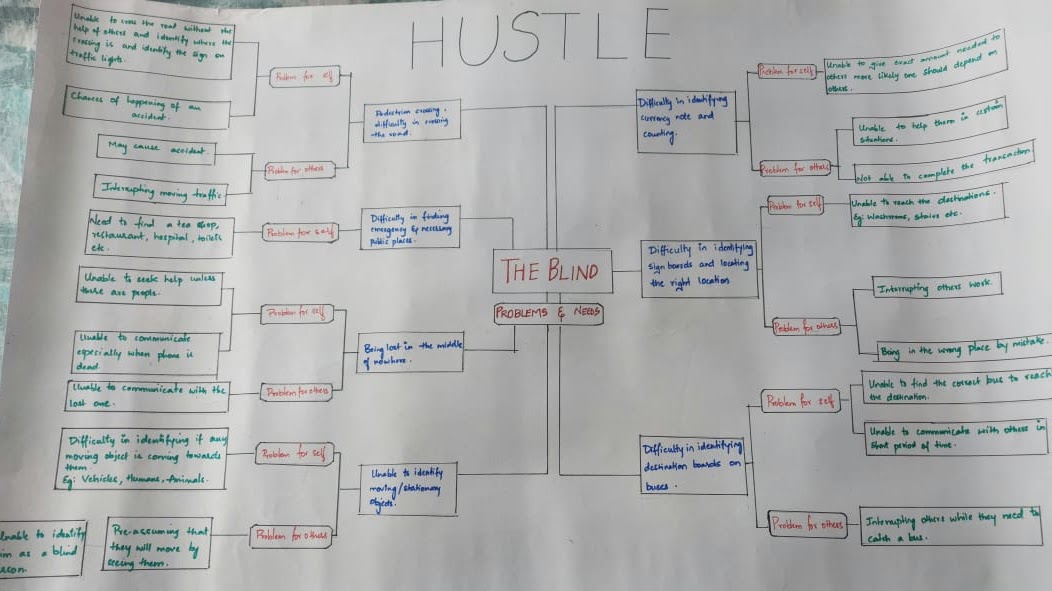 HUSTLE
THE BLIND
PROBLEMS & NEEDS
Pedestrian crossing,
difficulty in crossing
the road.
Problem for self
Unable to cross the road without the
help of others and identify where the
crossing is and identify the sign on
traffic lights.
Chances of happening of an
accident.
Problem for others
May cause accident.
Interrupting moving traffic
Difficulty in finding
emergency & necessary
Public places.
Problem for self
Need to find a tea shop,
restaurant, hospital, toilets
etc.
Being lost in the middle
of nowhere.
Problem for self
Unable to seek help unless
there are people.
Unable to communicate
especially when phone is
dead
Problem for others
Unable to communicate with the
lost one.
Unable to identify
moving/stationary
objects.
Problem for self
Difficulty in identifying if any
moving object is coming towards
them
Eg: Vehicles, Humans, Animals.
Problem for others
Pre-assuming that
they will move by
seeing them.
Unable to identify
as a blind
Difficulty in identifying
currency note and
counting.
Problem for self
Unable to give exact amount needed to
others more likely one should depend on
others.
Problem for others
Unable to help them in certain
situations.
Not able to complete the transaction
Difficulty in identifying
sign boards and locating
the right location
Problem for self
Unable to reach the destinations.
Eg: Washrooms, stairs etc.
Problem for others
Interrupting others work.
Being in the wrong place by mistake.
Difficulty in identifying
destination boards on
buses.
Problem for self
Unable to find the correct bus to reach
the destination.
Unable to communicate with others in
short period of time.
Problem for others
Interrupting others while they need to
catch a bus.